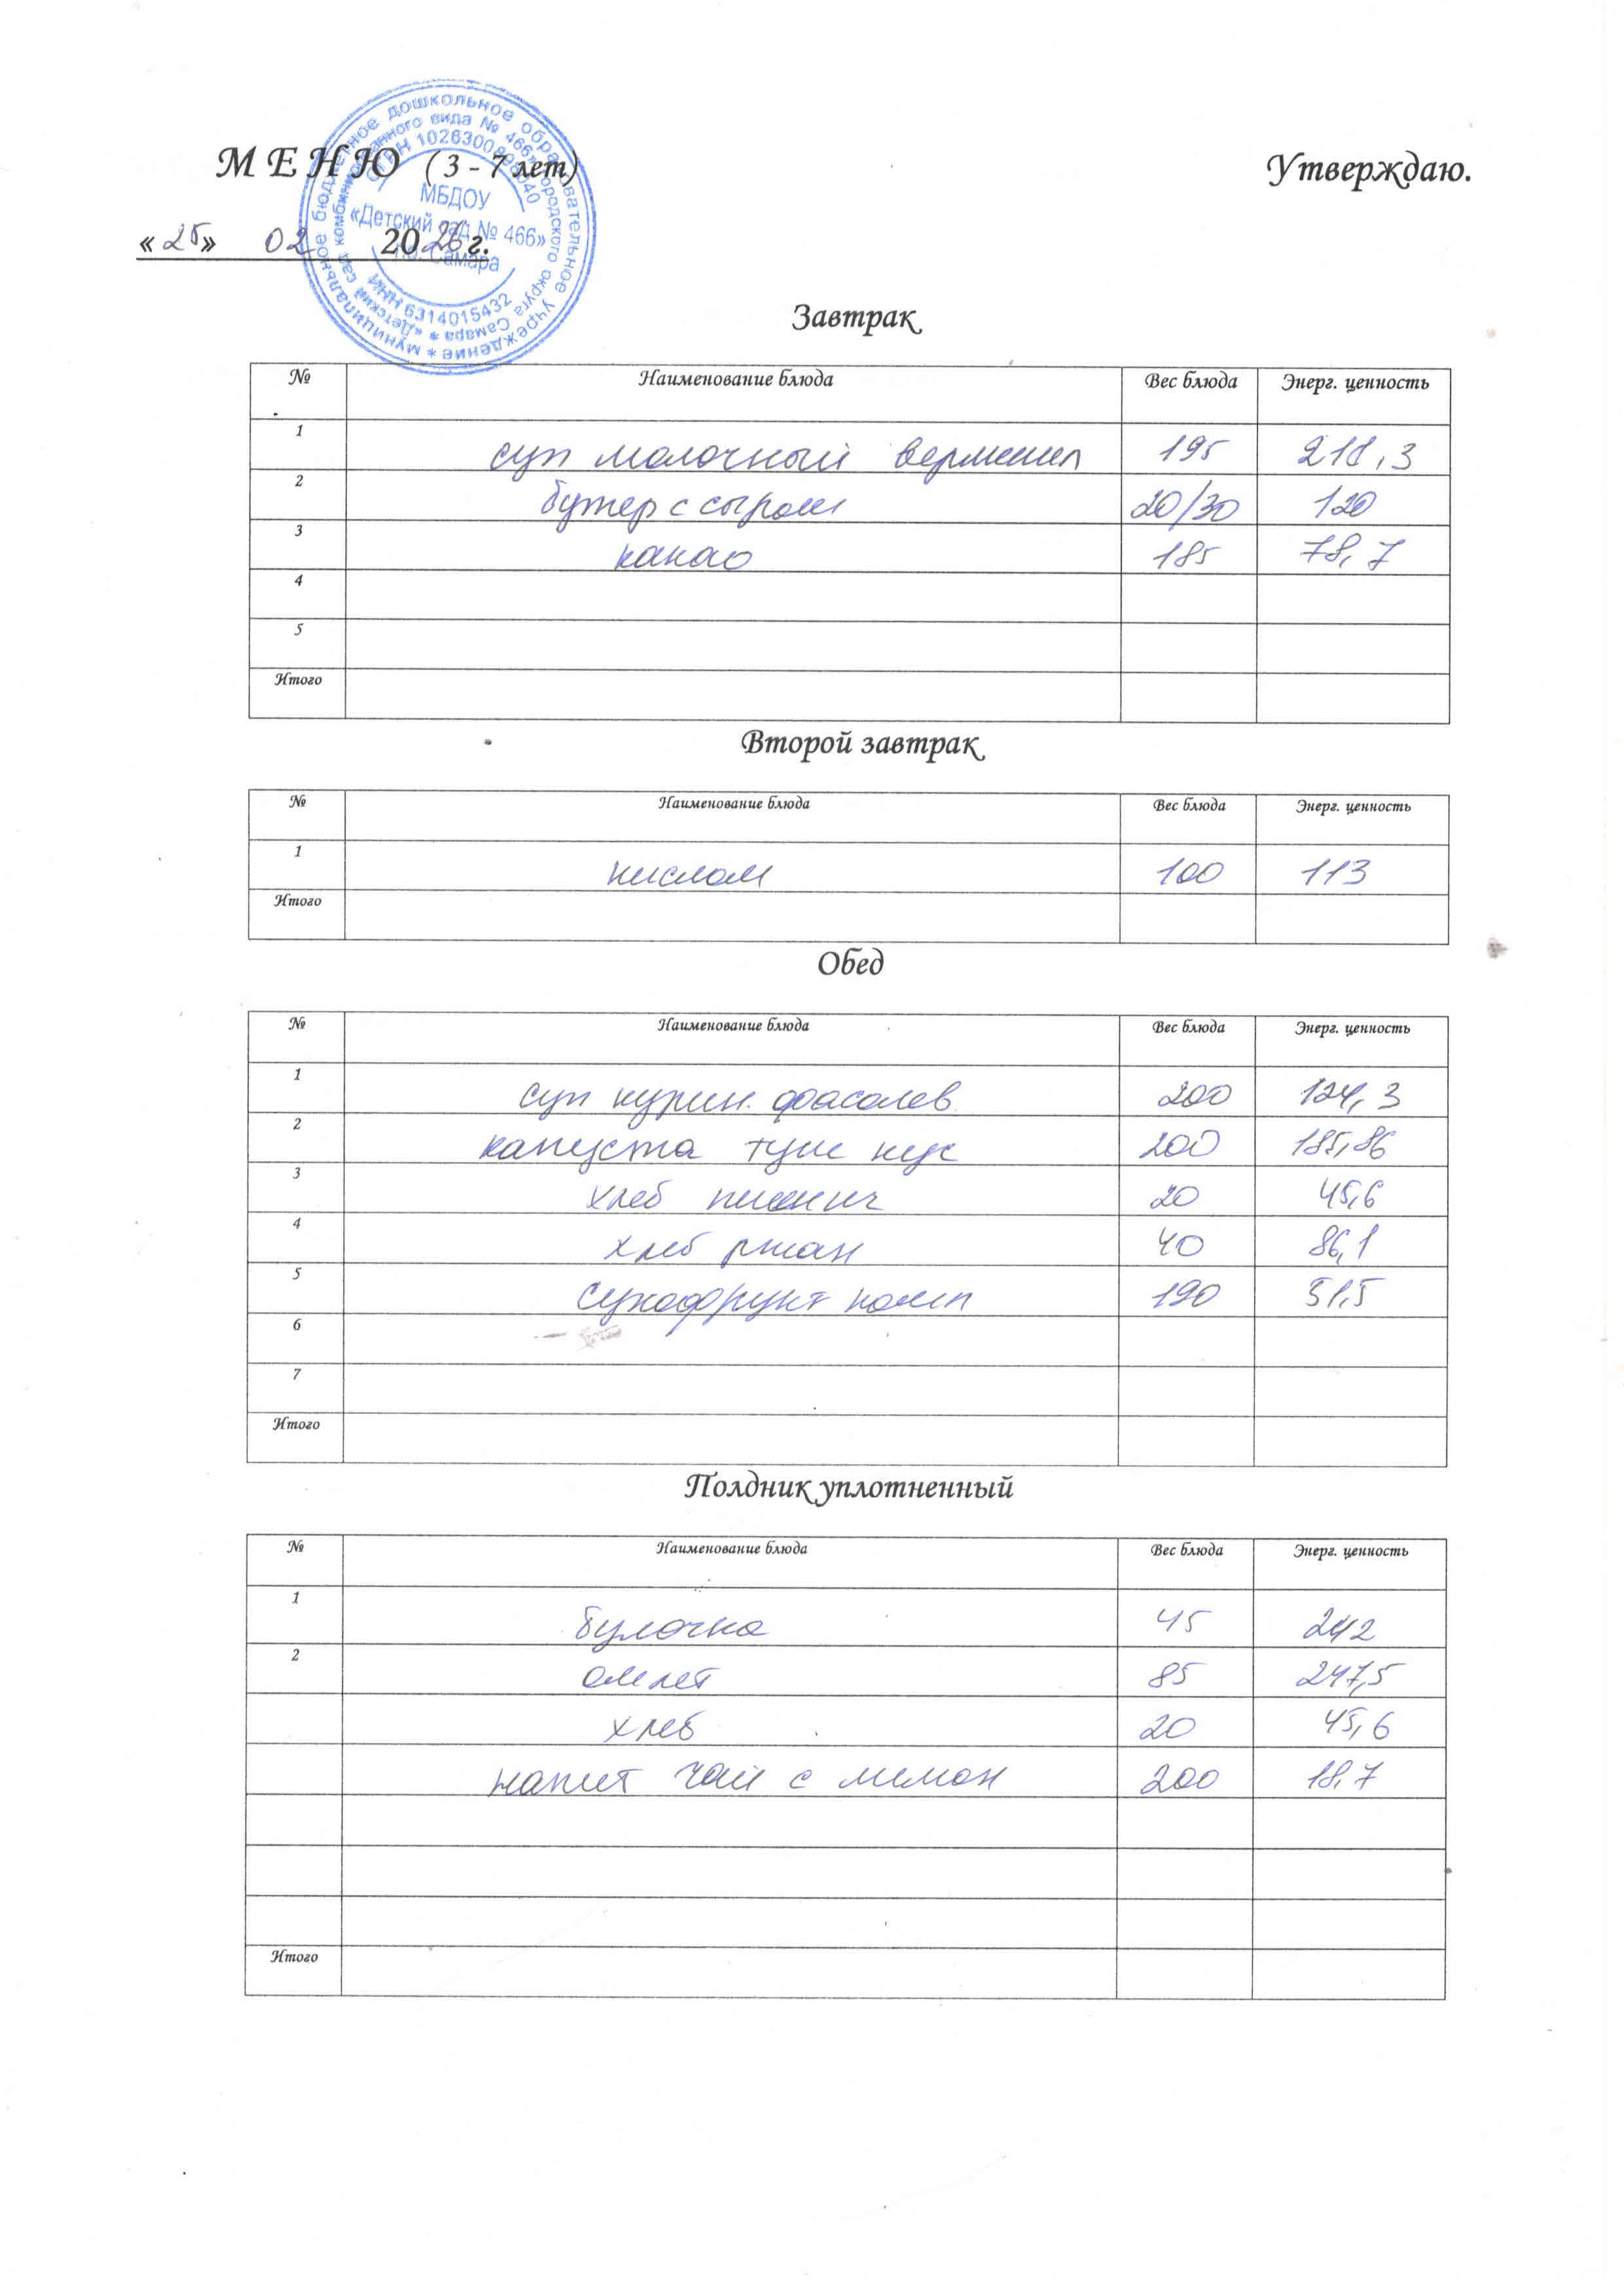 М Е Н Ю ( 3 - 7 лет)
Утверждаю.
« 25 » 02 2026 г.
МБДОУ
«Детский сад № 466»
г.о. Самара
ИНН 6314015432
Завтрак
№ Наименование блюда Вес блюда Энерг. ценность
1 суп молочный вермишел 195 211,3
2 бутер с сыром 20/30 120
3 какао 185 78,7
4
5
Итого
Второй завтрак
№ Наименование блюда Вес блюда Энерг. ценность
1 кислом 100 113
Итого
Обед
№ Наименование блюда Вес блюда Энерг. ценность
1 суп курин. фасолев 200 124,3
2 капуста туш кус 200 185,86
3 хлеб пшенич 20 45,6
4 хлеб ржан 40 86,1
5 сухофрукт комп 190 51,5
6
7
Итого
Полдник уплотненный
№ Наименование блюда Вес блюда Энерг. ценность
1 булочка 45 242
2 омлет 85 247,5
хлеб 20 45,6
напит чай с лимон 200 18,7
Итого